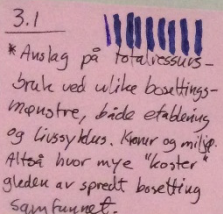 3.1
* Anslag på totalressurs-
bruk ved ulike bosettings-
mønstre, både etablering
og livssyklus. Kroner og miljø.
Altså hvor mye "koster"
gleden av spredt bosetting
samfunnet.